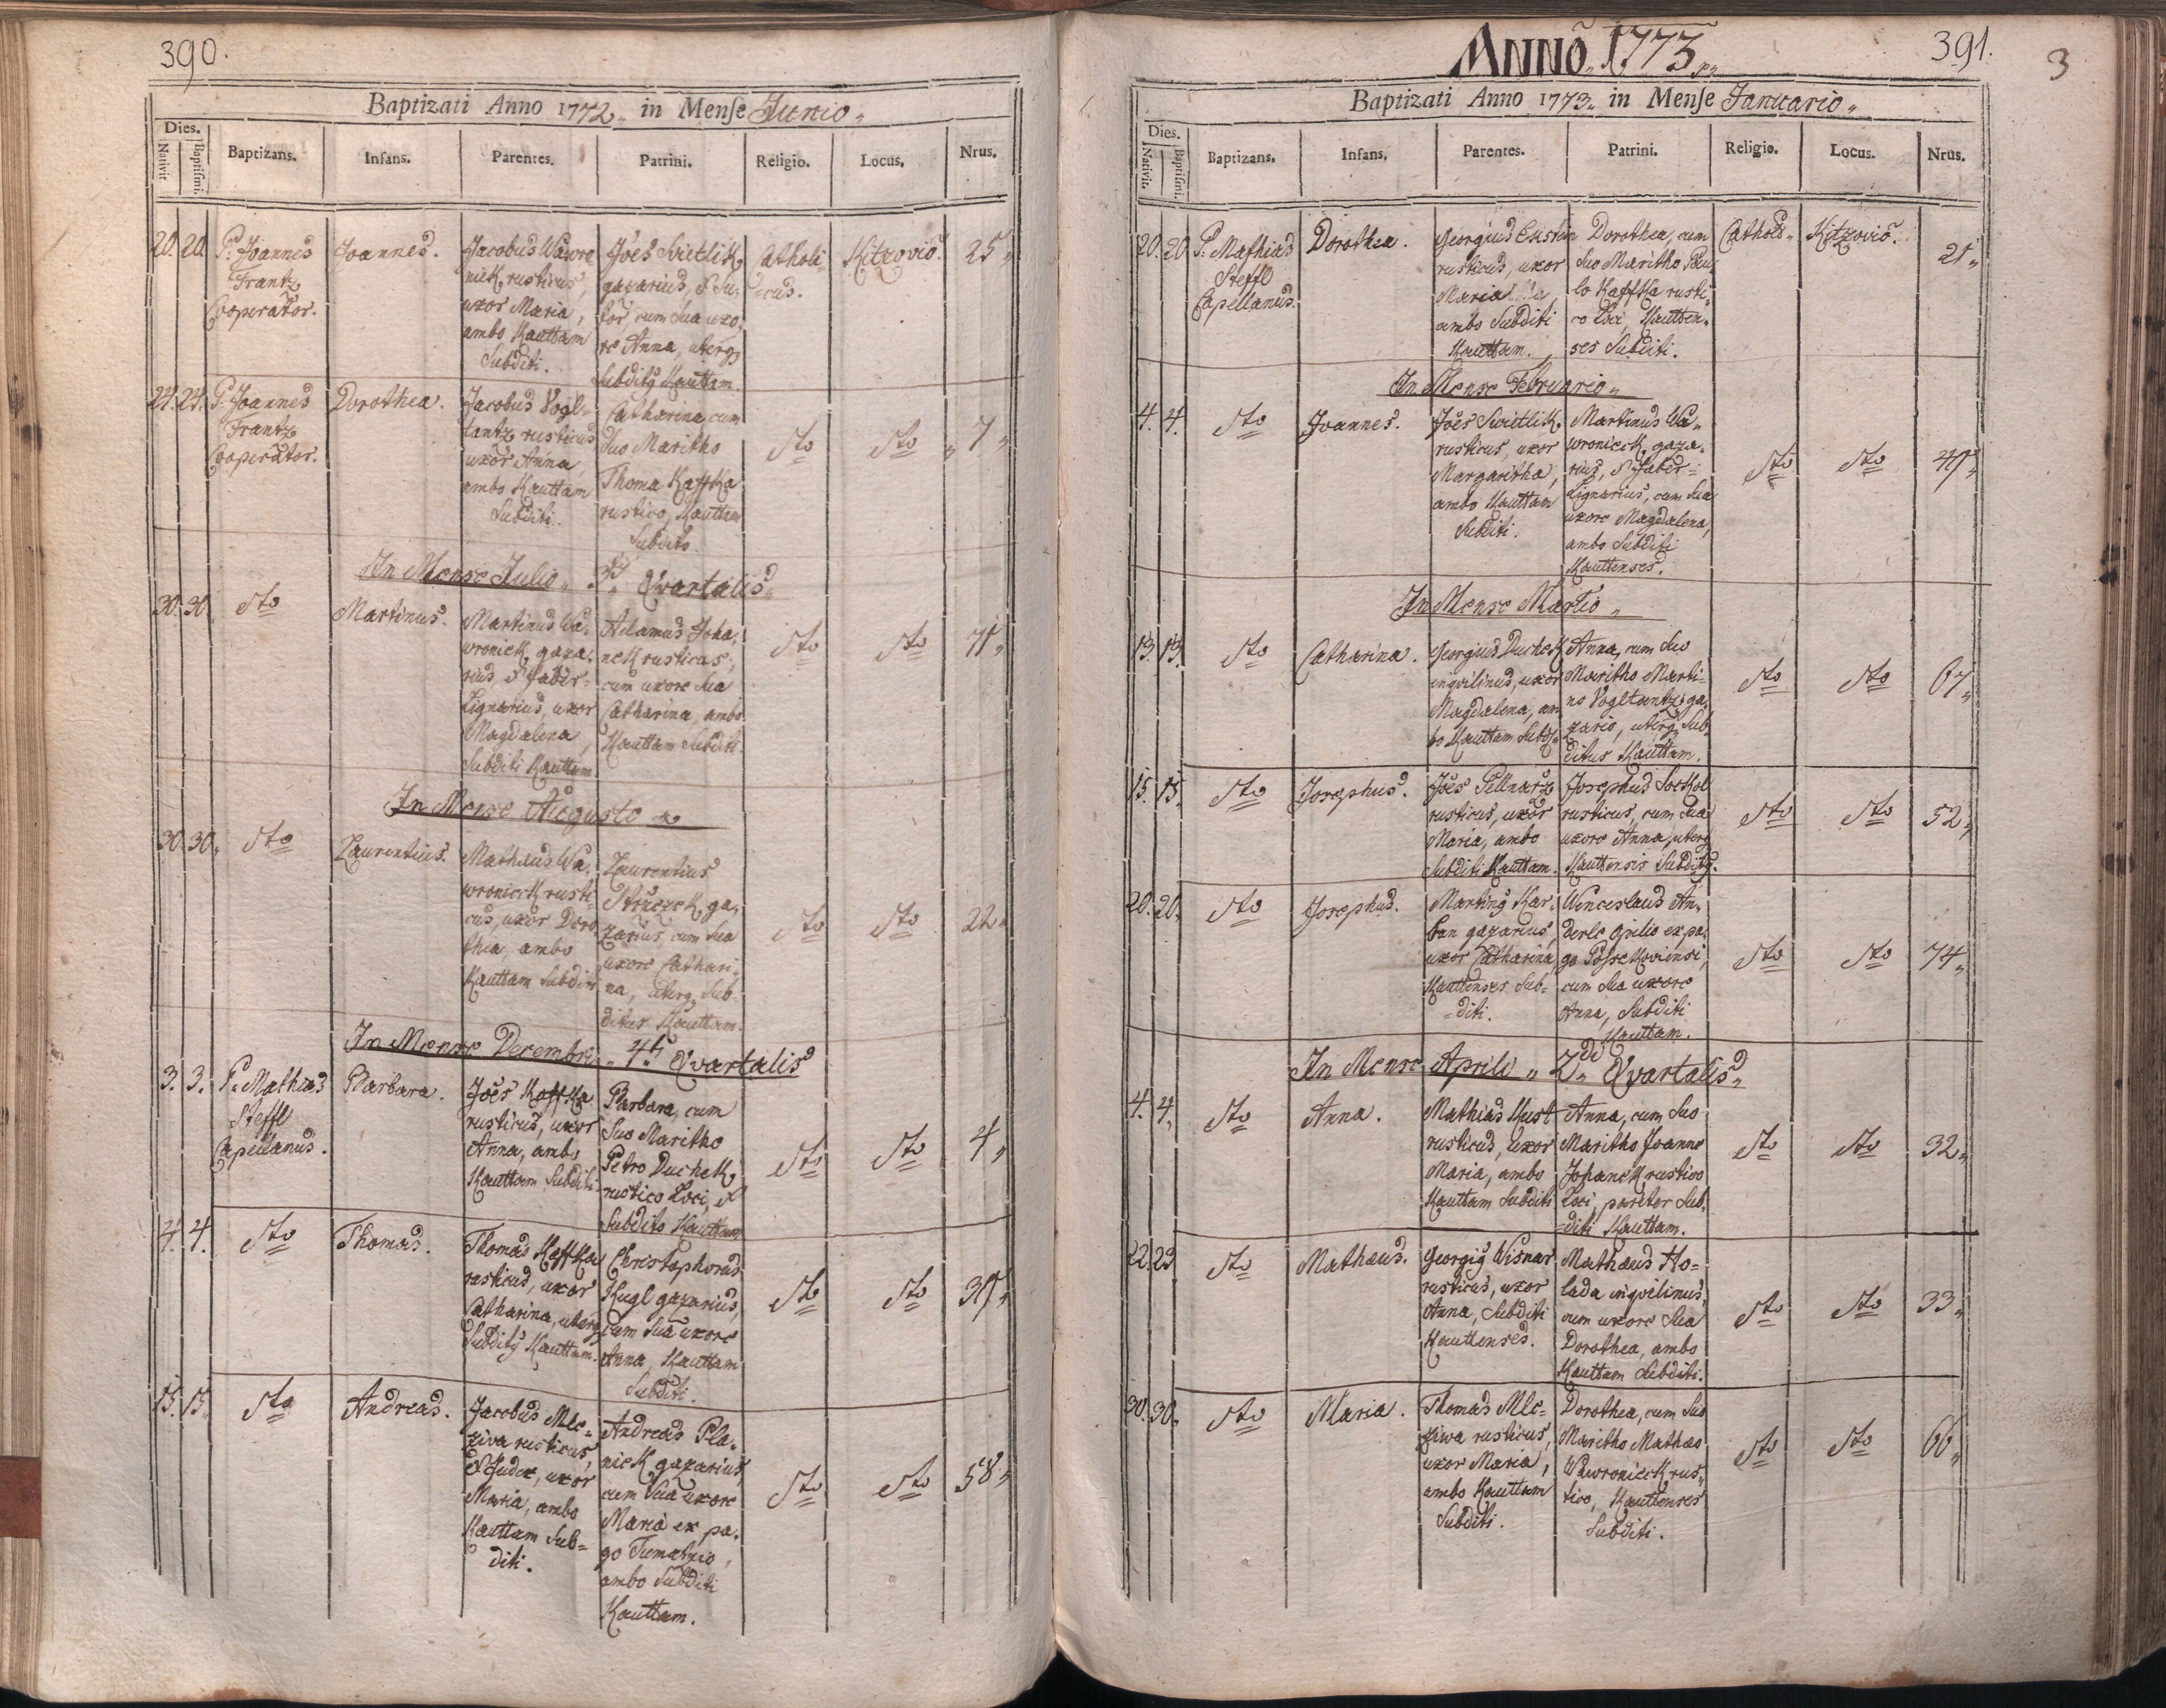 390.
Baptizati Anno 1772 in Mense Junio
Dies.
Nativit
Baptismi.
Baptizans.
Infans.
Parentes.
Patrini.
Religio.
Locus.
Nrus.
20. 20.
P. Joannes
Frantz
Cooperator.
Joannes.
Jacobus Wawro
nick rusticus,
uxor Maria,
ambo Kauttam
Subditi.
Joēs Swietlik
gazarius, & Su-
tor, cum sua uxo-
re Anna, uterq3
Subditg Kauttam
Catholi-
cus.
Kitzovio.
25
24. 24.
P. Joannes
Frantz
Cooperator.
Dorothea.
Jacobus Vogl-
tantz rusticus
uxor Anna,
ambo Kauttam
Subditi.
Catharina cum
suo Maritho
Thoma Kaffka
rustico, Kauttam
Subdito.
dto
dto
7
In Mense Julio 3ij Qvartalis
30. 30
dto
Martinus.
Martinus Wa-
wronick gaza-
rius, & faber-
Lignarius, uxor
Magdalena,
Subditi Kauttam
Adamus Joha-
nek rusticus,
cum uxore sua
Catharina, ambo
Kauttam Subditi.
dto
dto
71
In Mense Augusto
30. 30.
dto
Laurentius.
Mathæus Wa-
wronicek rusti-
cus, uxor Doro
thea, ambo
Kauttam Subditi
Laurentius
gazarius, cum sua
uxore Cathari-
na, uterq, Sub-
ditus Kauttam.
dto
dto
22
In Mense Decembri 4ti Qvartalis
3. 3.
P. Mathias
Steffl
Capellanus.
Barbara.
Joēs Kaffka
rusticus, uxor
Anna, ambo
Kauttam Subditi
Barbara, cum
suo Maritho
Petro Duchek
rustico Loci, &
Subdito Kauttam
dto
dto
4
4. 4.
dto
Thomas.
Thomas Kaffka
rusticus, uxor
Catharina, uterq
Subditg Kauttam.
Christophorus
Kugl gazarius,
cum sua uxore
Anna, Kauttam
Subditi.
dto
dto
15. 15.
dto
Andreas.
Jacobus Mle-
ziva rusticus,
& Judex, uxor
Maria, ambo
Kauttam Sub-
diti.
Andreas Pla-
nick gazarius,
cum sua uxore
Maria ex pa-
go
ambo Subditi
Kauttam.
dto
dto
58
ANNO 1773
391.
3
Baptizati Anno 1773 in Mense Januario
Dies.
Nativit.
Baptismi
Baptizans.
Infans.
Parentes.
Patrini.
Religio.
Locus.
Nrus.
20. 20
P. Mathias
Steffl
Capellanus.
Dorothea.
Georgius
rusticus, uxor
Maria
ambo Subditi
Kauttam.
Dorothea, cum
suo Maritho Pau-
lo Kaffka rusti-
co Loci, Kautten-
ses Subditi.
Cathol
Kitzovio.
21
In Mense Februario
4. 4.
dto
Joannes.
Joēs Swietlik
rusticus, uxor
Margaritha,
ambo Kauttam
Subditi.
Martinus Wa-
wronicek, gaza-
rius, & faber-
Lignarius, cum sua
uxore Magdalena,
ambo Subditi
Kauttenses.
dto
dto
In Mense Martio
13. 13.
dto
Catharina.
Georgius Duchek
inqvilinus, uxor
Magdalena, am
bo Kauttam Subdi
Anna, cum suo
Maritho Marti-
no Vogltantz ga-
zario, uterq Sub-
ditus Kauttam.
dto
dto
67
15. 15.
dto
Josephus.
Joēs Pellnarz
rusticus, uxor
Maria, ambo
Subditi Kauttam.
Josephus Soekol
rusticus, cum sua
uxore Anna, uterq
Kauttensis Subditg.
dto
dto
52
20. 20.
dto
Josephus.
Marting Kar-
ban gazarius,
uxor Catharina,
Kauttenses Sub-
diti.
Wenceslaus An-
derle opilio ex pa-
go Possekoviensi,
cum sua uxore
Anna, Subditi
Kauttam.
dto
dto
74
In Mense Aprili 2di Qvartalis
4. 4.
dto
Anna.
Mathias Kust
rusticus, uxor
Maria, ambo
Kauttam Subditi
Anna, cum suo
Maritho Joanne
Johanek rustico
Loci, pariter Sub-
diti Kauttam.
dto
dto
32
22. 23
dto
Mathæus.
Georgig Wisnar
rusticus, uxor
Anna, Subditi
Kauttenses.
Mathæus Ho-
lada inqvilinus,
cum uxore sua
Dorothea, ambo
Kauttam Subditi.
dto
dto
33
30. 30.
dto
Maria.
Thomas Mle-
ziwa rusticus,
uxor Maria,
ambo Kauttam
Subditi.
Dorothea, cum suo
Maritho Mathæo
Wawronicek rus-
tico, Kauttenses
Subditi.
dto
dto
66